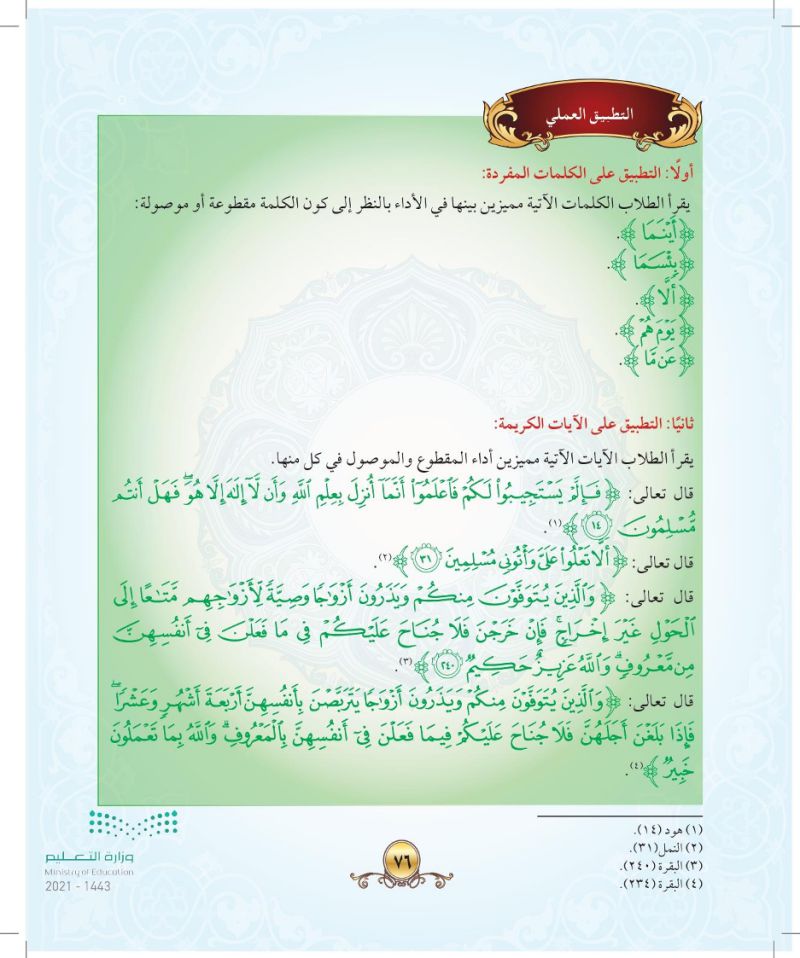 التطبيق العملي
أولًا: التطبيق على الكلمات المفردة:
يقرأ الطلاب الكلمات الآتية مميزين بينها في الأداء بالنظر إلى كون الكلمة مقطوعة أو موصولة:
﴿أَيْنَمَا﴾.
﴿بِئْسَمَا﴾.
﴿أَلَّا﴾.
﴿يَوْمَ هُم﴾.
﴿عَن مَّا﴾.
ثانيًا: التطبيق على الآيات الكريمة:
يقرأ الطلاب الآيات الآتية مميزين أداء المقطوع والموصول في كل منها.
قال تعالى: ﴿فَإِلَّمْ يَسْتَجِيبُوا۟ لَكُمْ فَٱعْلَمُوٓا۟ أَنَّمَآ أُنزِلَ بِعِلْمِ ٱللَّهِ وَأَن لَّآ إِلَٰهَ إِلَّا هُوَ ۖ فَهَلْ أَنتُم
مُّسْلِمُونَ ١٤﴾(١).
قال تعالى: ﴿أَلَّا تَعْلُوا۟ عَلَىَّ وَأْتُونِى مُسْلِمِينَ ٣١﴾(٢).
قال تعالى: ﴿وَٱلَّذِينَ يُتَوَفَّوْنَ مِنكُمْ وَيَذَرُونَ أَزْوَٰجًا وَصِيَّةً لِّأَزْوَٰجِهِم مَّتَٰعًا إِلَى
ٱلْحَوْلِ غَيْرَ إِخْرَاجٍ ۚ فَإِنْ خَرَجْنَ فَلَا جُنَاحَ عَلَيْكُمْ فِى مَا فَعَلْنَ فِىٓ أَنفُسِهِنَّ
مِن مَّعْرُوفٍ ۗ وَٱللَّهُ عَزِيزٌ حَكِيمٌ ٢٤٠﴾(٣).
قال تعالى: ﴿وَٱلَّذِينَ يُتَوَفَّوْنَ مِنكُمْ وَيَذَرُونَ أَزْوَٰجًا يَتَرَبَّصْنَ بِأَنفُسِهِنَّ أَرْبَعَةَ أَشْهُرٍ وَعَشْرًا ۖ
فَإِذَا بَلَغْنَ أَجَلَهُنَّ فَلَا جُنَاحَ عَلَيْكُمْ فِيمَا فَعَلْنَ فِىٓ أَنفُسِهِنَّ بِٱلْمَعْرُوفِ ۗ وَٱللَّهُ بِمَا تَعْمَلُونَ
خَبِيرٌ﴾(٤).
(١) هود (١٤).
(٢) النمل(٣١).
(٣) البقرة (٢٤٠).
(٤) البقرة (٢٣٤).
٧٦
وزارة التعليم
Ministry of Education
2021 - 1443